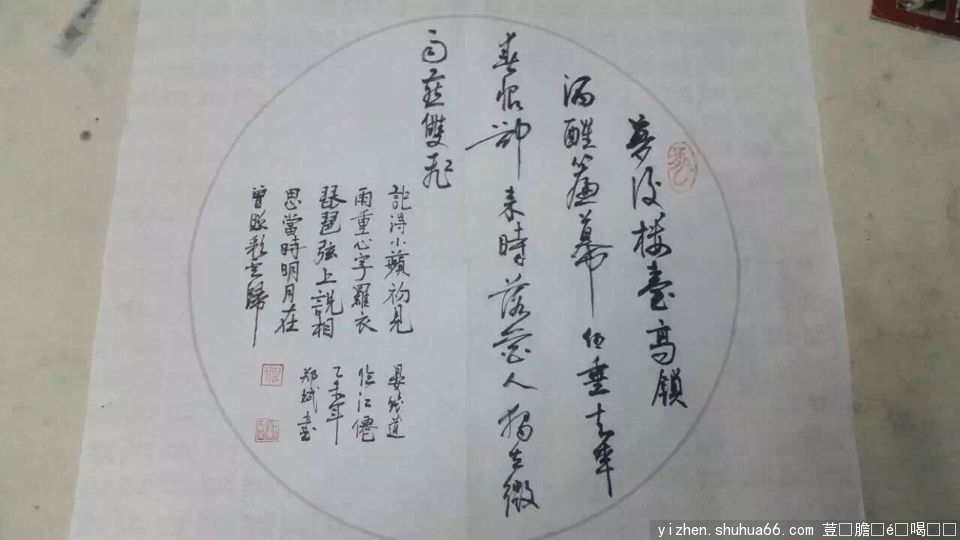 夢後樓臺高鎖
酒醒簾幕低垂去年
春恨卻來時落花人獨立微
雨燕雙飛
記得小蘋初見
兩重心字羅衣
琵琶弦上說相
思當時明月在
曾照彩雲歸
晏幾道
臨江僊
乙未年
郑斌書
yizhen.shuhua66.com